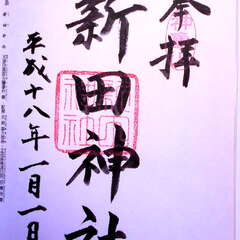 奉拝
新田神社
平成十八年一月一日